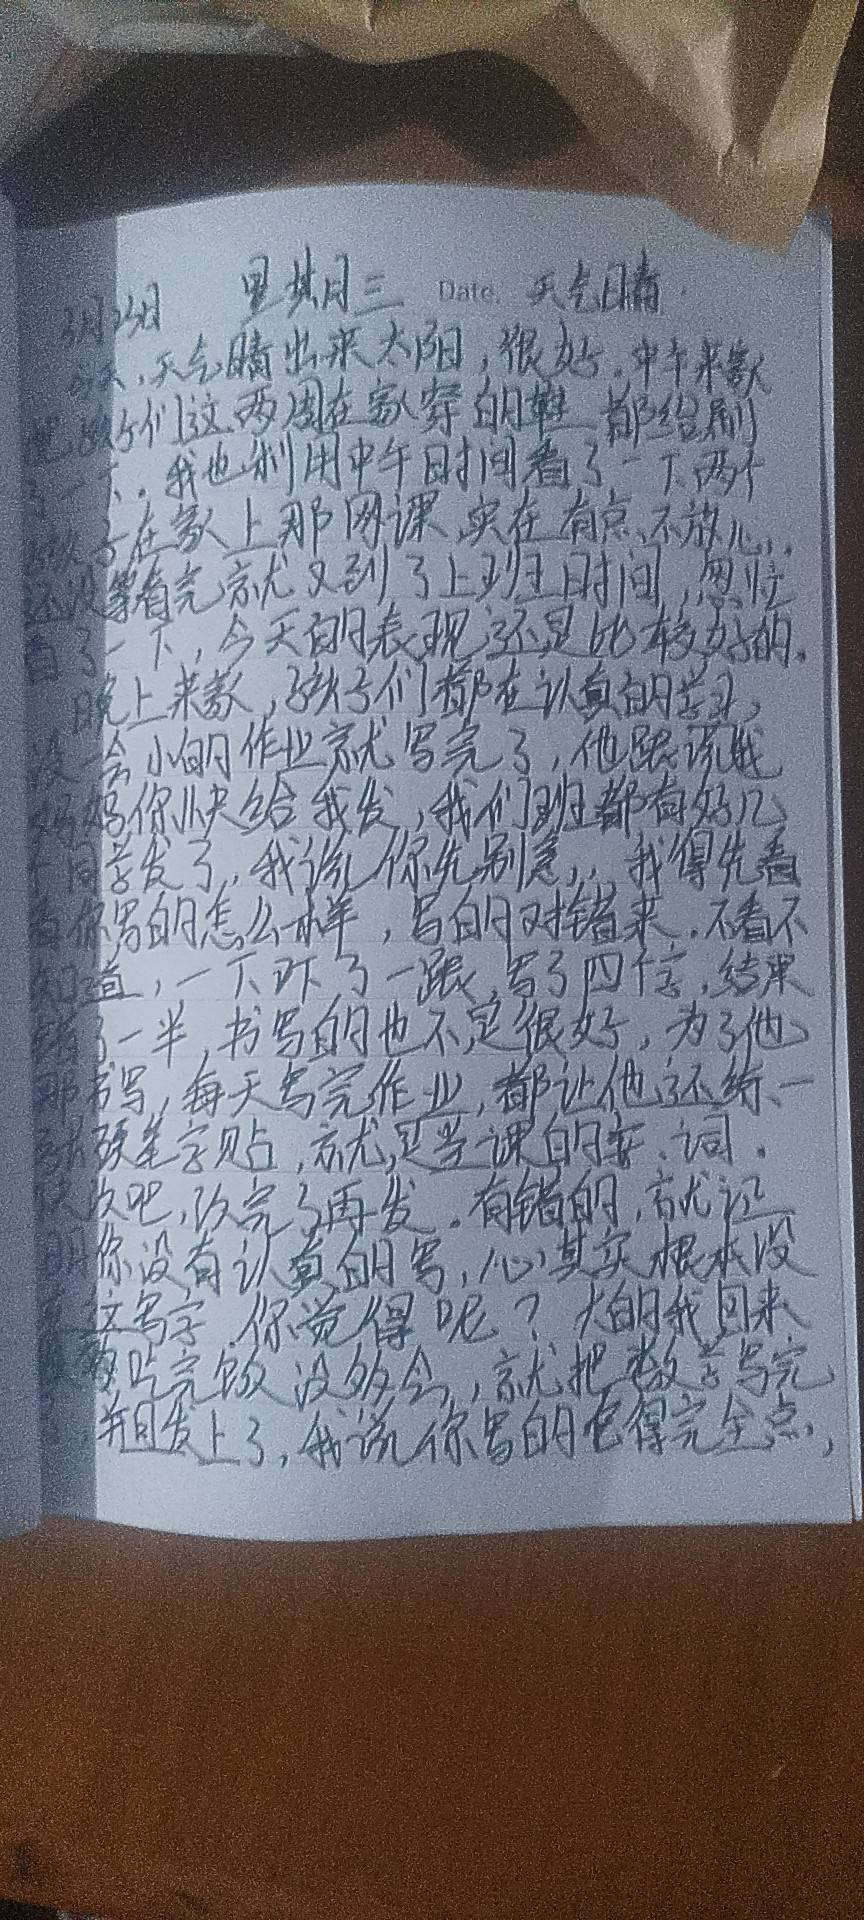 3月24日 星期三 Date. 天气晴
今天,天气晴出来太阳,很好。中午来家
把孩子们这两周在家穿的鞋都给刷
了一下。我也利用中午时间看了一下两个
孩子在家上那网课,实在有点不放心,
还没等看完就又到了上班时间,忽忙
看了一下,今天的表现还是比较好的。
晚上来家,孩子们都在认真的学习,
没一会小的作业就写完了,他跟说我
妈妈你快给我发,我们班都有好几
个同学发了,我说你先别急,我得先看
看你写的怎么样,写的对错来,不看不
知道,一下吓了一跳,写了四个字,结果
错了一半,书写的也不是很好,为了他
那书写,每天写完作业,都让他还练一
张硬笔字贴,就是当课的字.词。
快改吧,改完了再发。有错的,就证
明你没有认真的写,心其实根本没
在这写字,你觉得呢?大的我回来
吃完饭没多会,就把数学写完
了,并且发上了,我说你写的它得完全点,